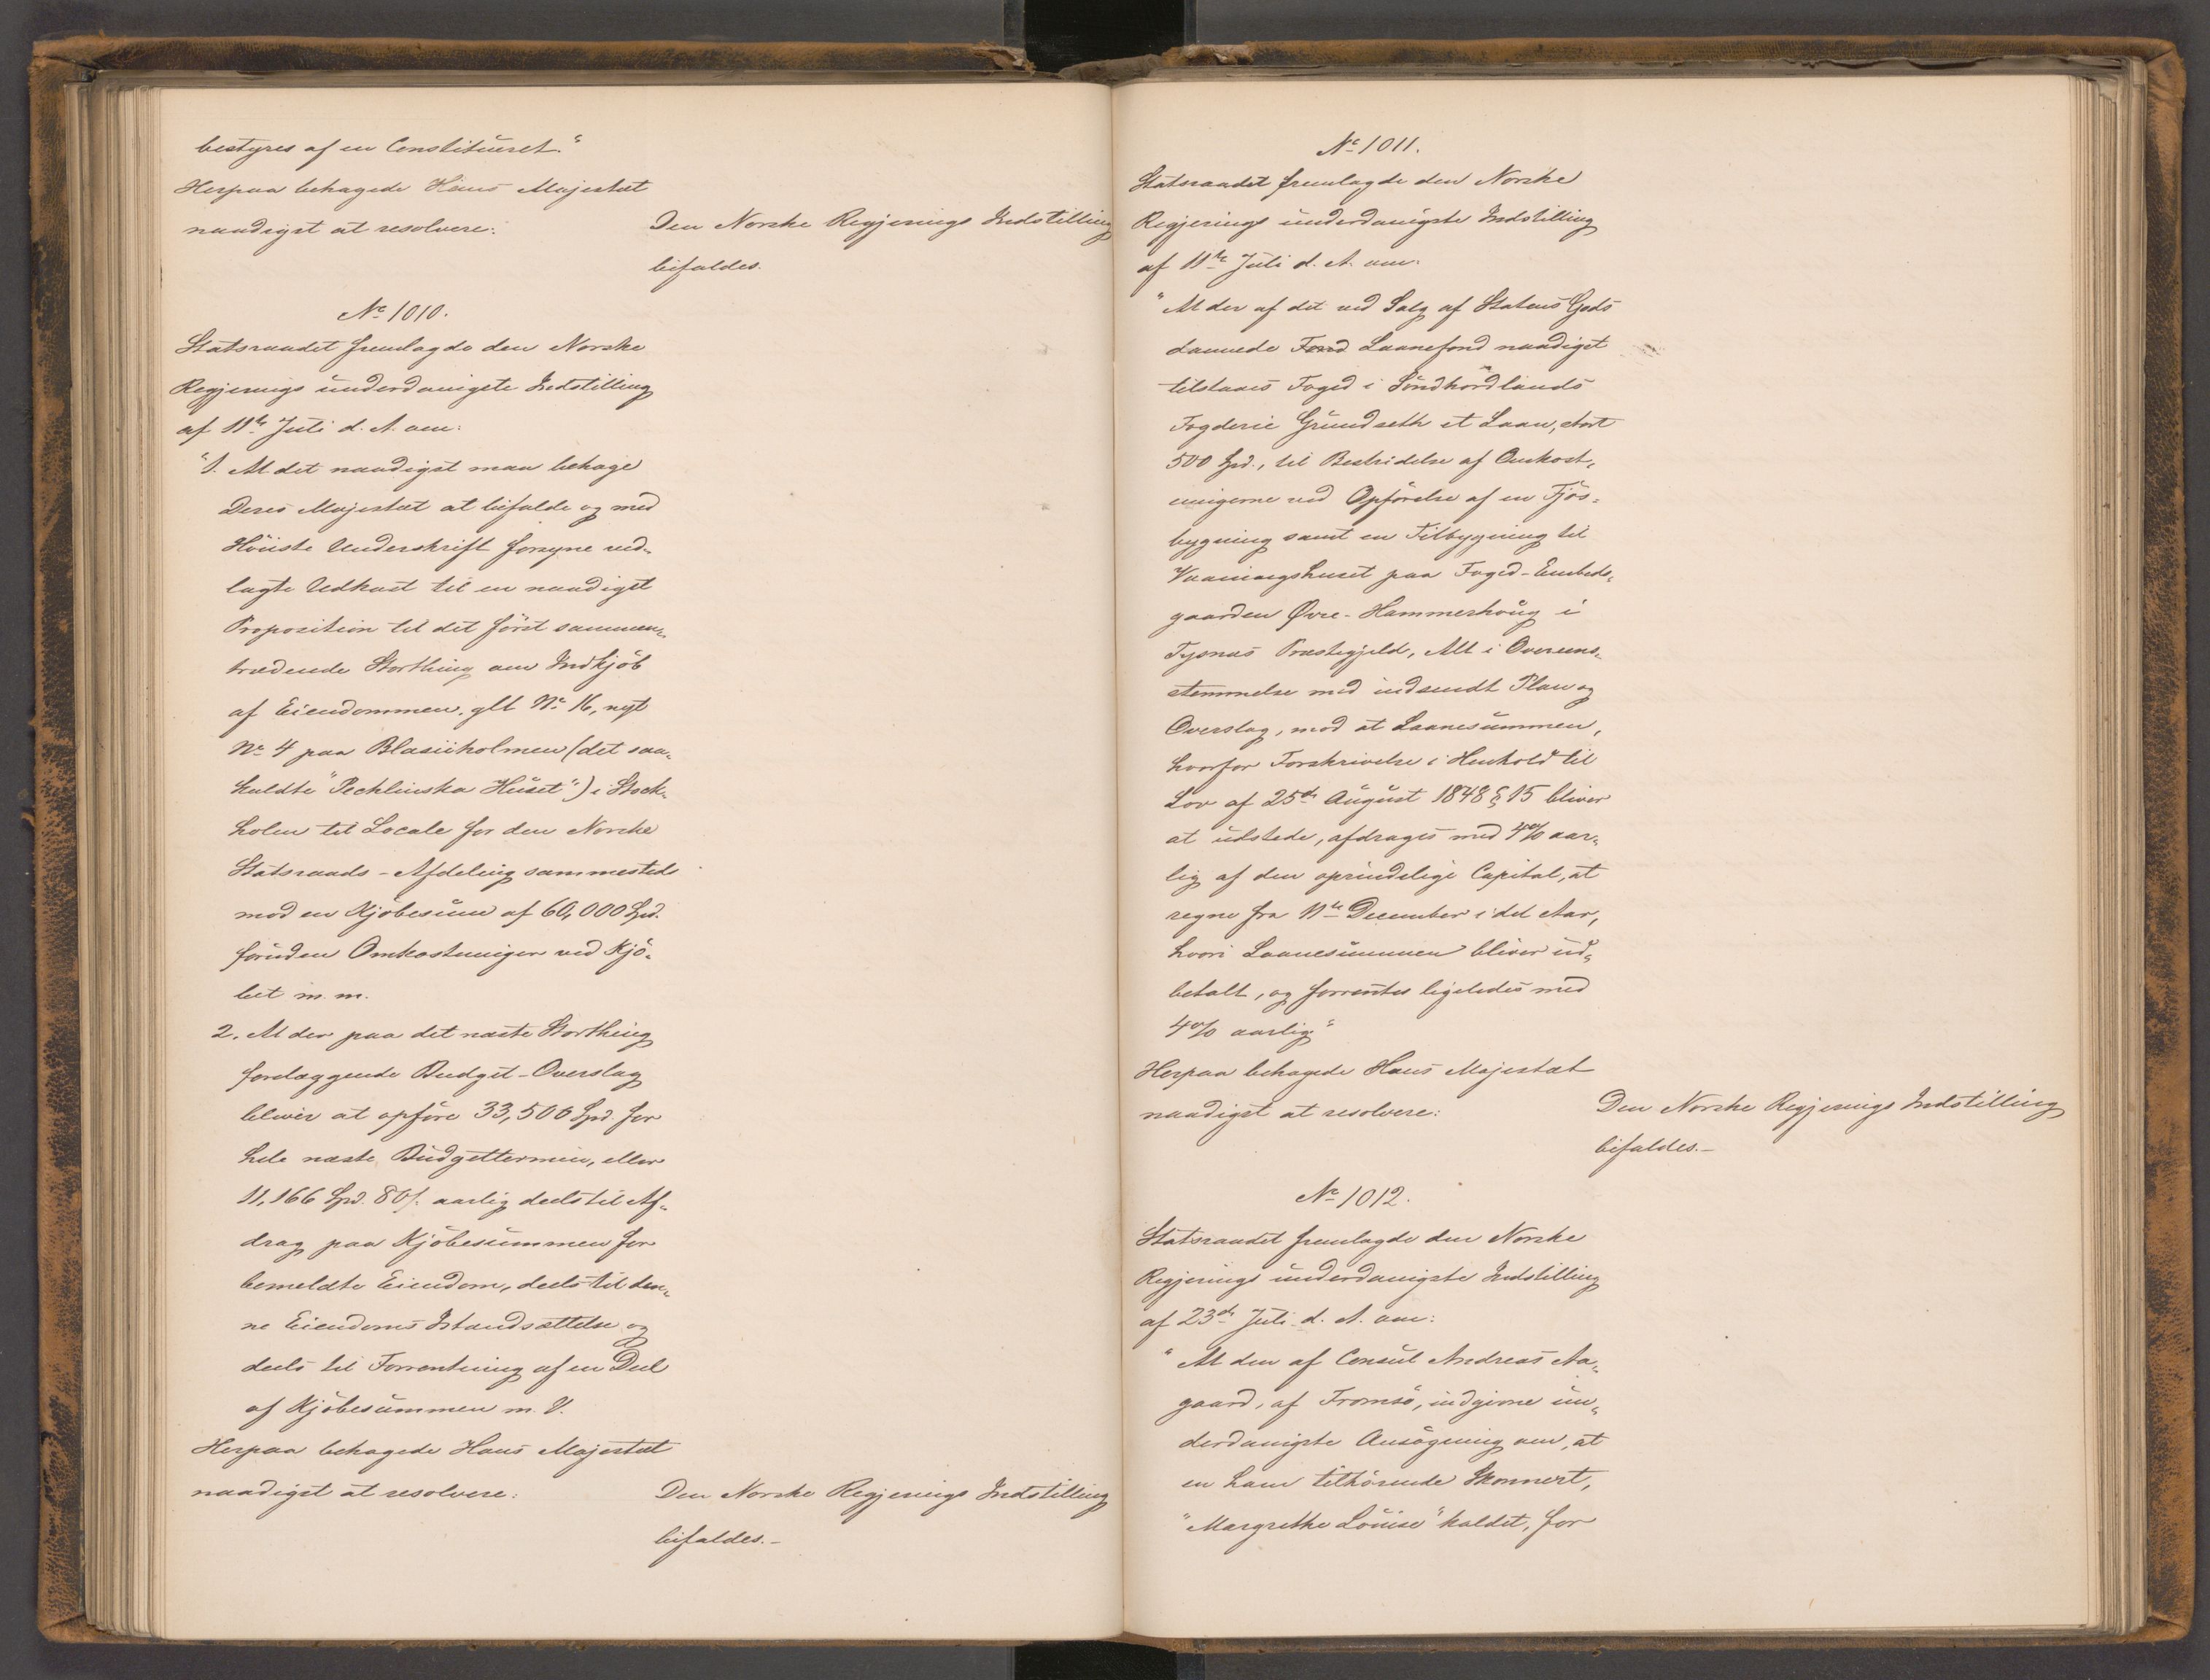 bestyres af en Constitueret."
Herpaa behagede Hans Majestæt
naadigst at resolvere:
Den Norske Regjerings Indstilling
bifaldes.
No 1010.
Statsraadet fremlagde den Norske
Regjerings underdanigste Indstilling
af 11te Juli d. A. om:
"1. At det naadigst maa behage
Deres Majestæt at bifalde og med
Höieste Underskrift forsyne ved-
lagte Udkast til en naadigst
Proposition til det först sammen-
trædende Storthing om Indkjöb
af Eiendommen, glt No 16, nyt
No 4 paa Blasiiholmen (det saa-
kaldte "Pechlinska Huset") i Stock-
holm til Locale for den Norske
Statsraads-Afdeling sammesteds
mod en Kjöbesum af 60,000 Spd.
foruden Omkostninger ved Kjö-
bet m. m.
2. At der paa det næste Storthing
forelæggende Budget-Overslag
bliver at opföre 33,500 Spd. for
hele næste Budgettermin, eller
11,166 Spd. 80 s. aarlig deels til Af-
drag paa Kjöbesummen for
bemeldte Eiendom, deels til den-
ne Eiendoms Istandsættelse og
deels til Forrentning af en Deel
af Kjöbesummen m. V.
Herpaa behagede Hans Majestæt
naadigst at resolvere:
Den Norske Regjerings Indstilling
bifaldes.-
No 1011.
Statsraadet fremlagde den Norske
Regjerings underdanigste Indstilling
af 11te Juli d. A. om:
"At der af det ved Salg af Statens Gods
dannede Fond Laanefond naadigst
tilstaaes Foged i Söndhordlands
Fogderie Grundseth et Laan, stort
500 Spd., til Bestridelse af Omkost-
ningerne ved Opförelse af en Fjös-
bygning samt en Tilbygning til
Vaaningshuset paa Foged-Embeds-
gaarden Øvre-Hammerhoug i
Tysnæs Præstegjeld, Alt i Overeens-
stemmelse med indsendt Plan og
Overslag, mod at Laanesummen,
hvorfor Forskrivelse i Henhold til
Lov af 25de August 1848 § 15 bliver
at udstede, afdrages med 4% aar-
lig af den oprindelige Capital, at
regne fra 11te December i det Aar,
hvori Laanesummen bliver ud-
betalt, og forrentes ligeledes med
4% aarlig."
Herpaa behagede Hans Majestæt
naadigst at resolvere:
Den Norske Regjerings Indstilling
bifaldes.-
No 1012.
Statsraadet fremlagde den Norske
Regjerings underdanigste Indstilling
af 23de Juli d. A. om:
"At den af Consul Andreas Aa-
gaard, af Tromsö, indgivne un-
derdanigste Ansögning om, at
en ham tilhörende Skonnert,
"Margrethe Louise" kaldet, for